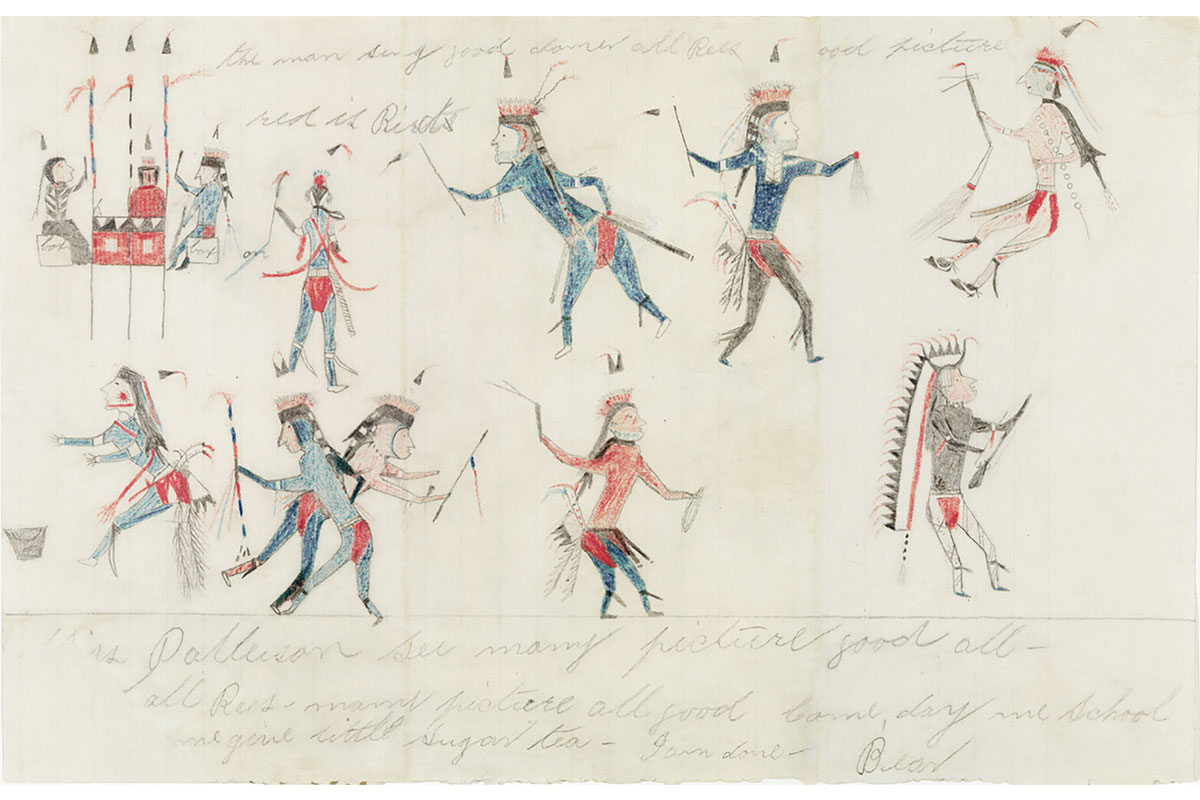 the man sing good dance all Rees good picture
red is
box box on
is Patterson see many picture good all-
all Rees - many picture all good Come, day me School
me give little sugar tea - I am done - Bear